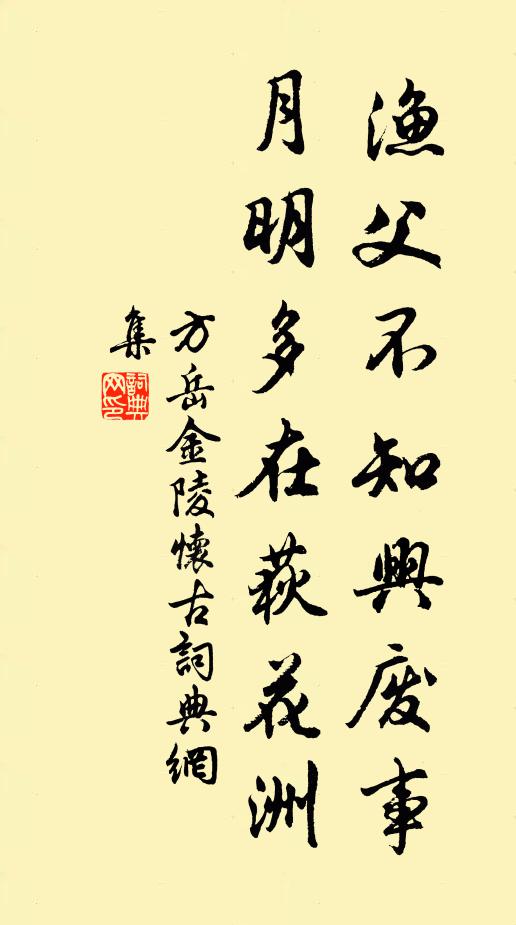 漁父不知興廢事
月明多在荻花洲
方岳金陵懷古詞典網
集
詞典
网印